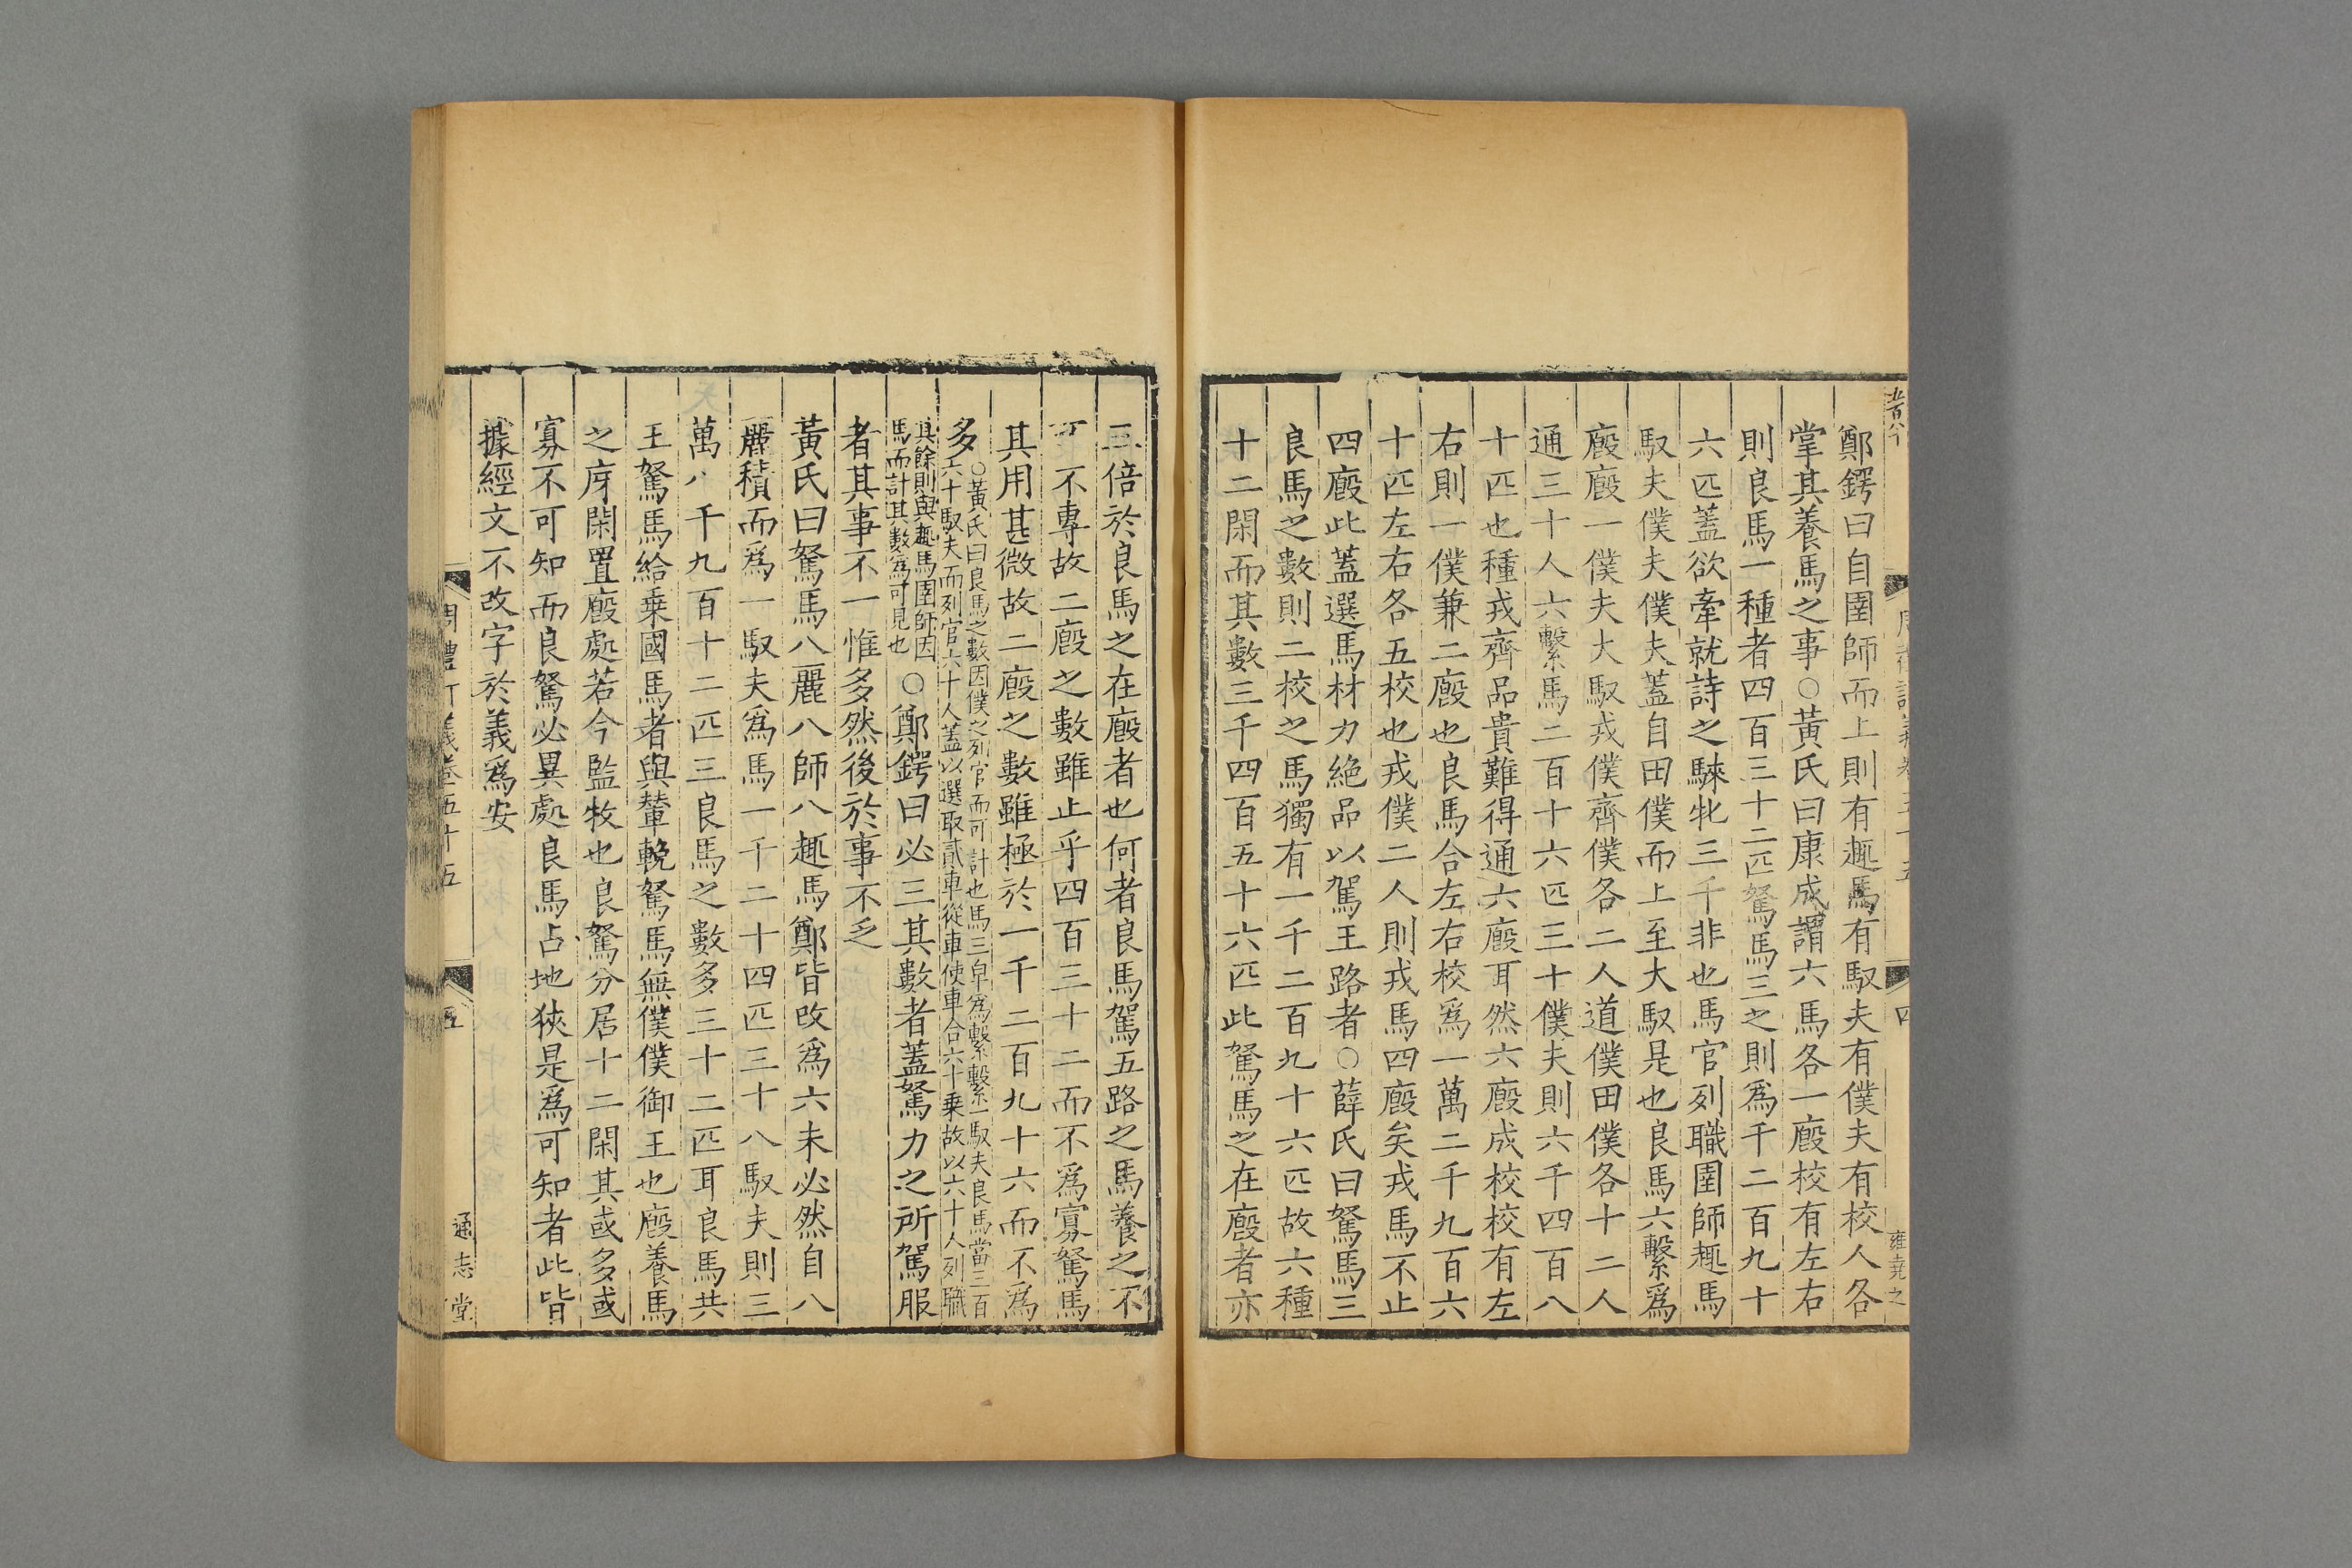 鄭鍔曰自圉師而上則有趣馬有馭夫有僕夫有校人各
掌其養馬之事○黃氏曰康成謂六馬各一廄校有左右
則良馬一種者四百三十二匹駑馬三之則爲千二百九十
六匹蓋欲牽就詩之騋牝三千非也馬官列職圉師趣馬
馭夫僕夫僕夫蓋自田僕而上至大馭是也良馬六繫爲
廄廄一僕夫大馭戎僕齊僕各二人道僕田僕各十二人
通三十人六繫馬二百十六匹三十僕夫則六千四百八
十匹也種戎齊品貴難得通六廄耳然六廄成校校有左
右則一僕兼二廄也良馬合左右校爲一萬二千九百六
十匹左右各五校也戎僕二人則戎馬四廄矣戎馬不止
四廄此蓋選馬材力絶品以駕王路者○薛氏曰駑馬三
良馬之數則二校之馬獨有一千二百九十六匹故六種
十二閑而其數三千四百五十六匹此駑馬之在廄者亦
四
三倍於良馬之在廄者也何者良馬駕五路之馬養之不
不專故二廄之數雖止乎四百三十二而不爲寡駑馬
其用甚微故二廄之數雖極於一千二百九十六而不爲
多○黃氏曰良馬之數因僕之列官而可計也馬三皁爲繫繫一馭夫良馬當三百
六十馭夫而列官六十人蓋以選取貳車從車使車合六十乗故以六十人列職
其餘則與趣馬圉師因
馬而計其數爲可見也○鄭鍔曰必三其數者蓋駑馬力之所駕服
者其事不一惟多然後於事不乏
黃氏曰駑馬八麗八師八趣馬鄭皆改爲六未必然自八
麗積而爲一馭夫爲馬一千二十四匹三十八馭夫則三
萬八千九百十二匹三良馬之數多三十二匹耳良馬共
王駑馬給乗國馬者與輦輓駑馬無僕僕御王也廄養馬
之庌閑置廄處若今監牧也良駑分居十二閑其或多或
寡不可知而良駑必異處良馬占地狹是爲可知者此皆
據經文不改字於義爲安
五
通志堂